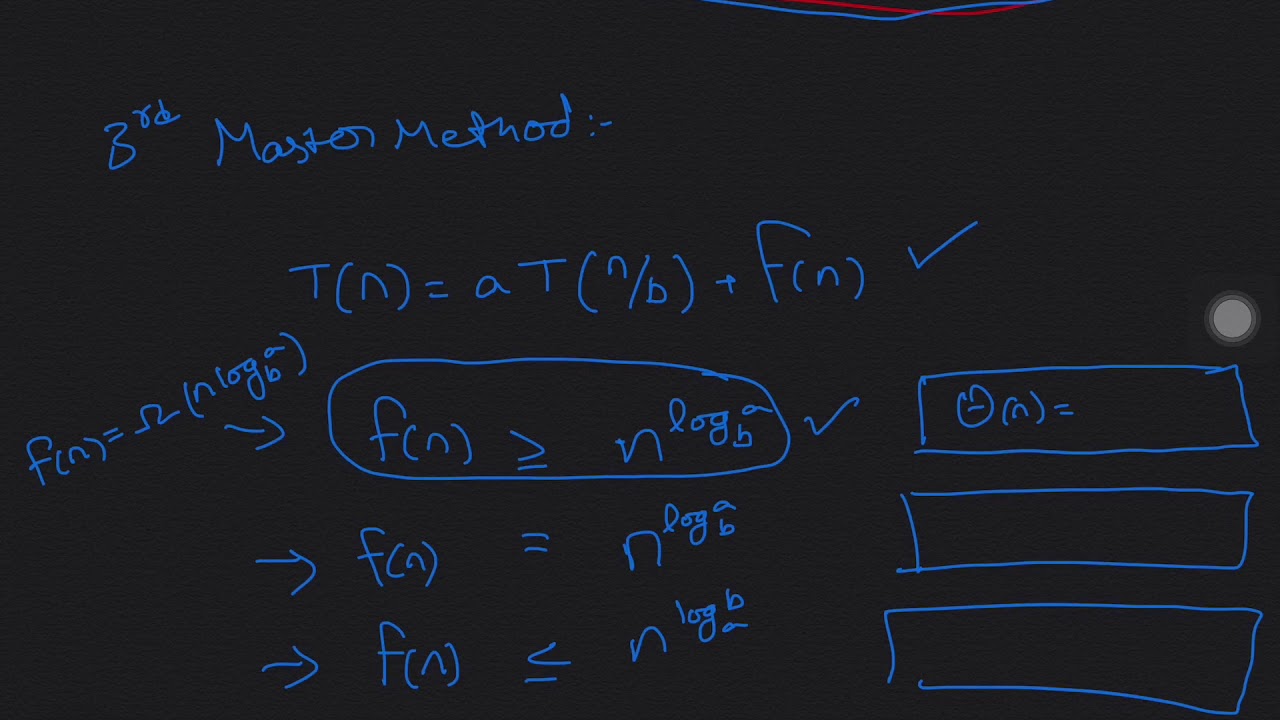 3rd Master Method:-
T(n) = a T(n/b) + f(n) ✓
f(n) = Ω(n^log_b^a)
→ f(n) ≥ n^log_b^a ✓
Θ(n) =
→ f(n) = n^log_b^a
→ f(n) ≤ n^log_a^b